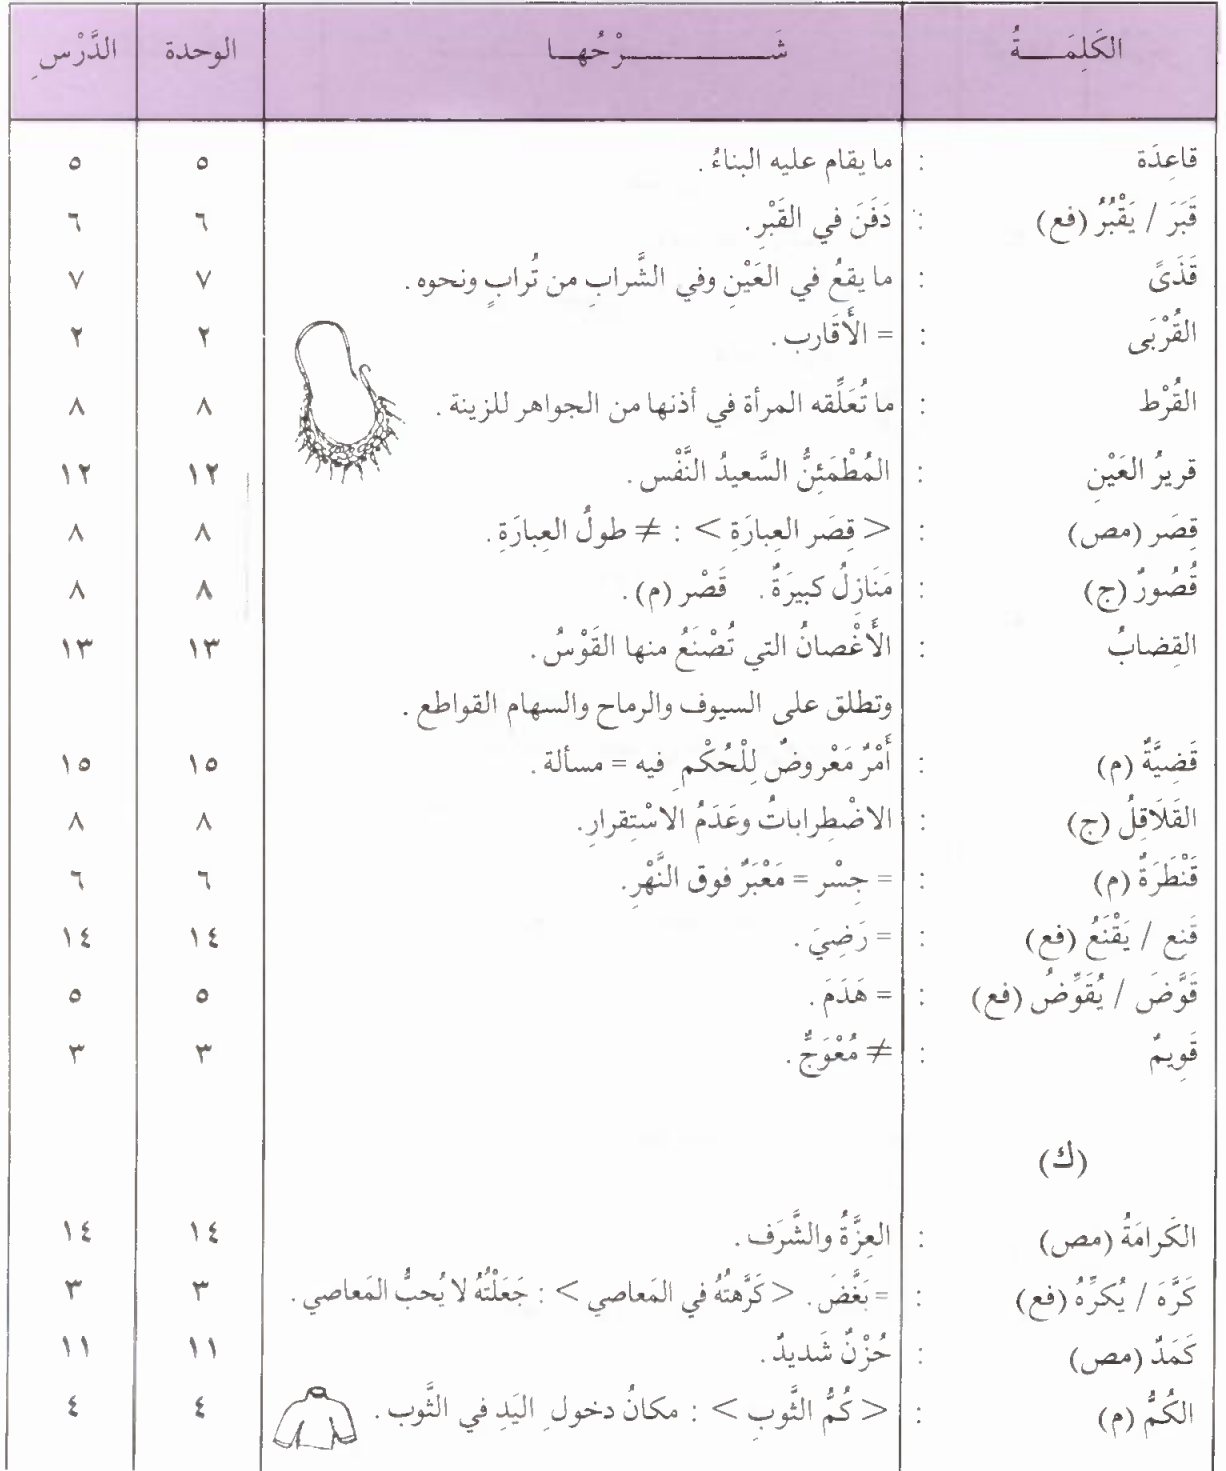 الكَلِمَـــةُ شَــــــــرْحُهــا الوحدة الدَّرْسِ
قاعِدَة : ما يقام عليه البناءُ . ٥ ٥
قَبَرَ / يَقْبُرُ (فع) : دَفَنَ في القَبْرِ . ٦ ٦
قَذَىً : ما يقعُ في العَيْنِ وفي الشَّرابِ من تُرابٍ ونحوه . ٧ ٧
القُرْبَى : = الأَقَارب . ٢ ٢
القُرْط : ما تُعَلِّقه المرأة في أذنها من الجواهر للزينة . ٨ ٨
قريرُ العَيْنِ : المُطْمَئِنُّ السَّعيدُ النَّفْس . ١٢ ١٢
قِصَر (مص) : < قِصَر العِبارَةِ > : ≠ طولُ العِبارَةِ . ٨ ٨
قُصُورٌ (ج) : مَنَازِلُ كبيرَةٌ . قَصْر (م) . ٨ ٨
القِضابُ : الأَغْصانُ التي تُصْنَعُ منها القَوْسُ . ١٣ ١٣
وتطلق على السيوف والرماح والسهام القواطع .
قَضِيَّةٌ (م) : أَمْرٌ مَعْروضٌ لِلْحُكْمِ فيه = مسألة . ١٥ ١٥
القَلَاقِلُ (ج) : الاضْطِراباتُ وعَدَمُ الاسْتِقرارِ . ٨ ٨
قَنْطَرَةٌ (م) : = جِسْر = مَعْبَرٌ فوق النَّهْرِ . ٦ ٦
قَنِع / يَقْنَعُ (فع) : = رَضِيَ . ١٤ ١٤
قَوَّضَ / يُقَوِّضُ (فع) : = هَدَمَ . ٥ ٥
قَوِيمٌ : ≠ مُعْوَجٌّ . ٣ ٣
(ك)
الكَرامَةُ (مص) : العِزَّةُ والشَّرَف . ١٤ ١٤
كَرَّهَ / يُكَرِّهُ (فع) : = بَغَّضَ . < كَرَّهتُهُ في المَعاصي > : جَعَلْتُهُ لا يُحبُّ المَعاصي . ٣ ٣
كَمَدٌ (مص) : حُزْنٌ شَديدٌ . ١١ ١١
الكُمُّ (م) : < كُمُّ الثَّوبِ > : مكانُ دخولِ اليَدِ في الثَّوب . ٤ ٤